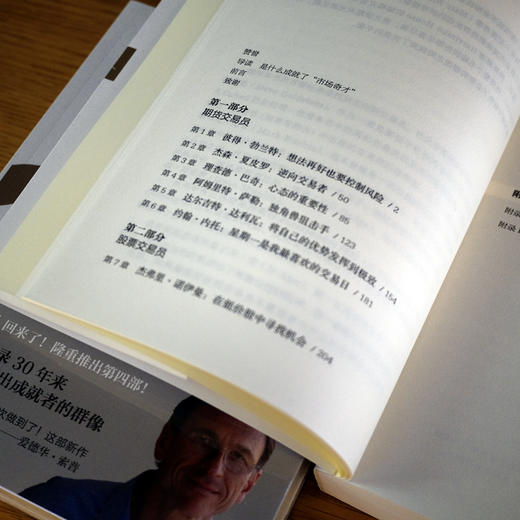 赞誉
导读 是什么成就了“市场奇才”
前言
致谢
第一部分
期货交易员
第1章 彼得·勃兰特：想法再好也要控制风险 / 2
第2章 杰森·夏皮罗：逆向交易者 / 50
第3章 理查德·巴奇：心态的重要性 / 85
第4章 阿姆里特·萨勒：独角兽狙击手 / 123
第5章 达尔吉特·达利瓦：将自己的优势发挥到极致 / 154
第6章 约翰·内托：星期一是我最喜欢的交易日 / 181
第二部分
股票交易员
第7章 杰弗里·诺伊曼：在低价股中寻找机会 / 204
附录
附录
回来了！隆重推出第四部！
录30年来
出成就者的群像
次做到了！这部新作
——爱德华·索普